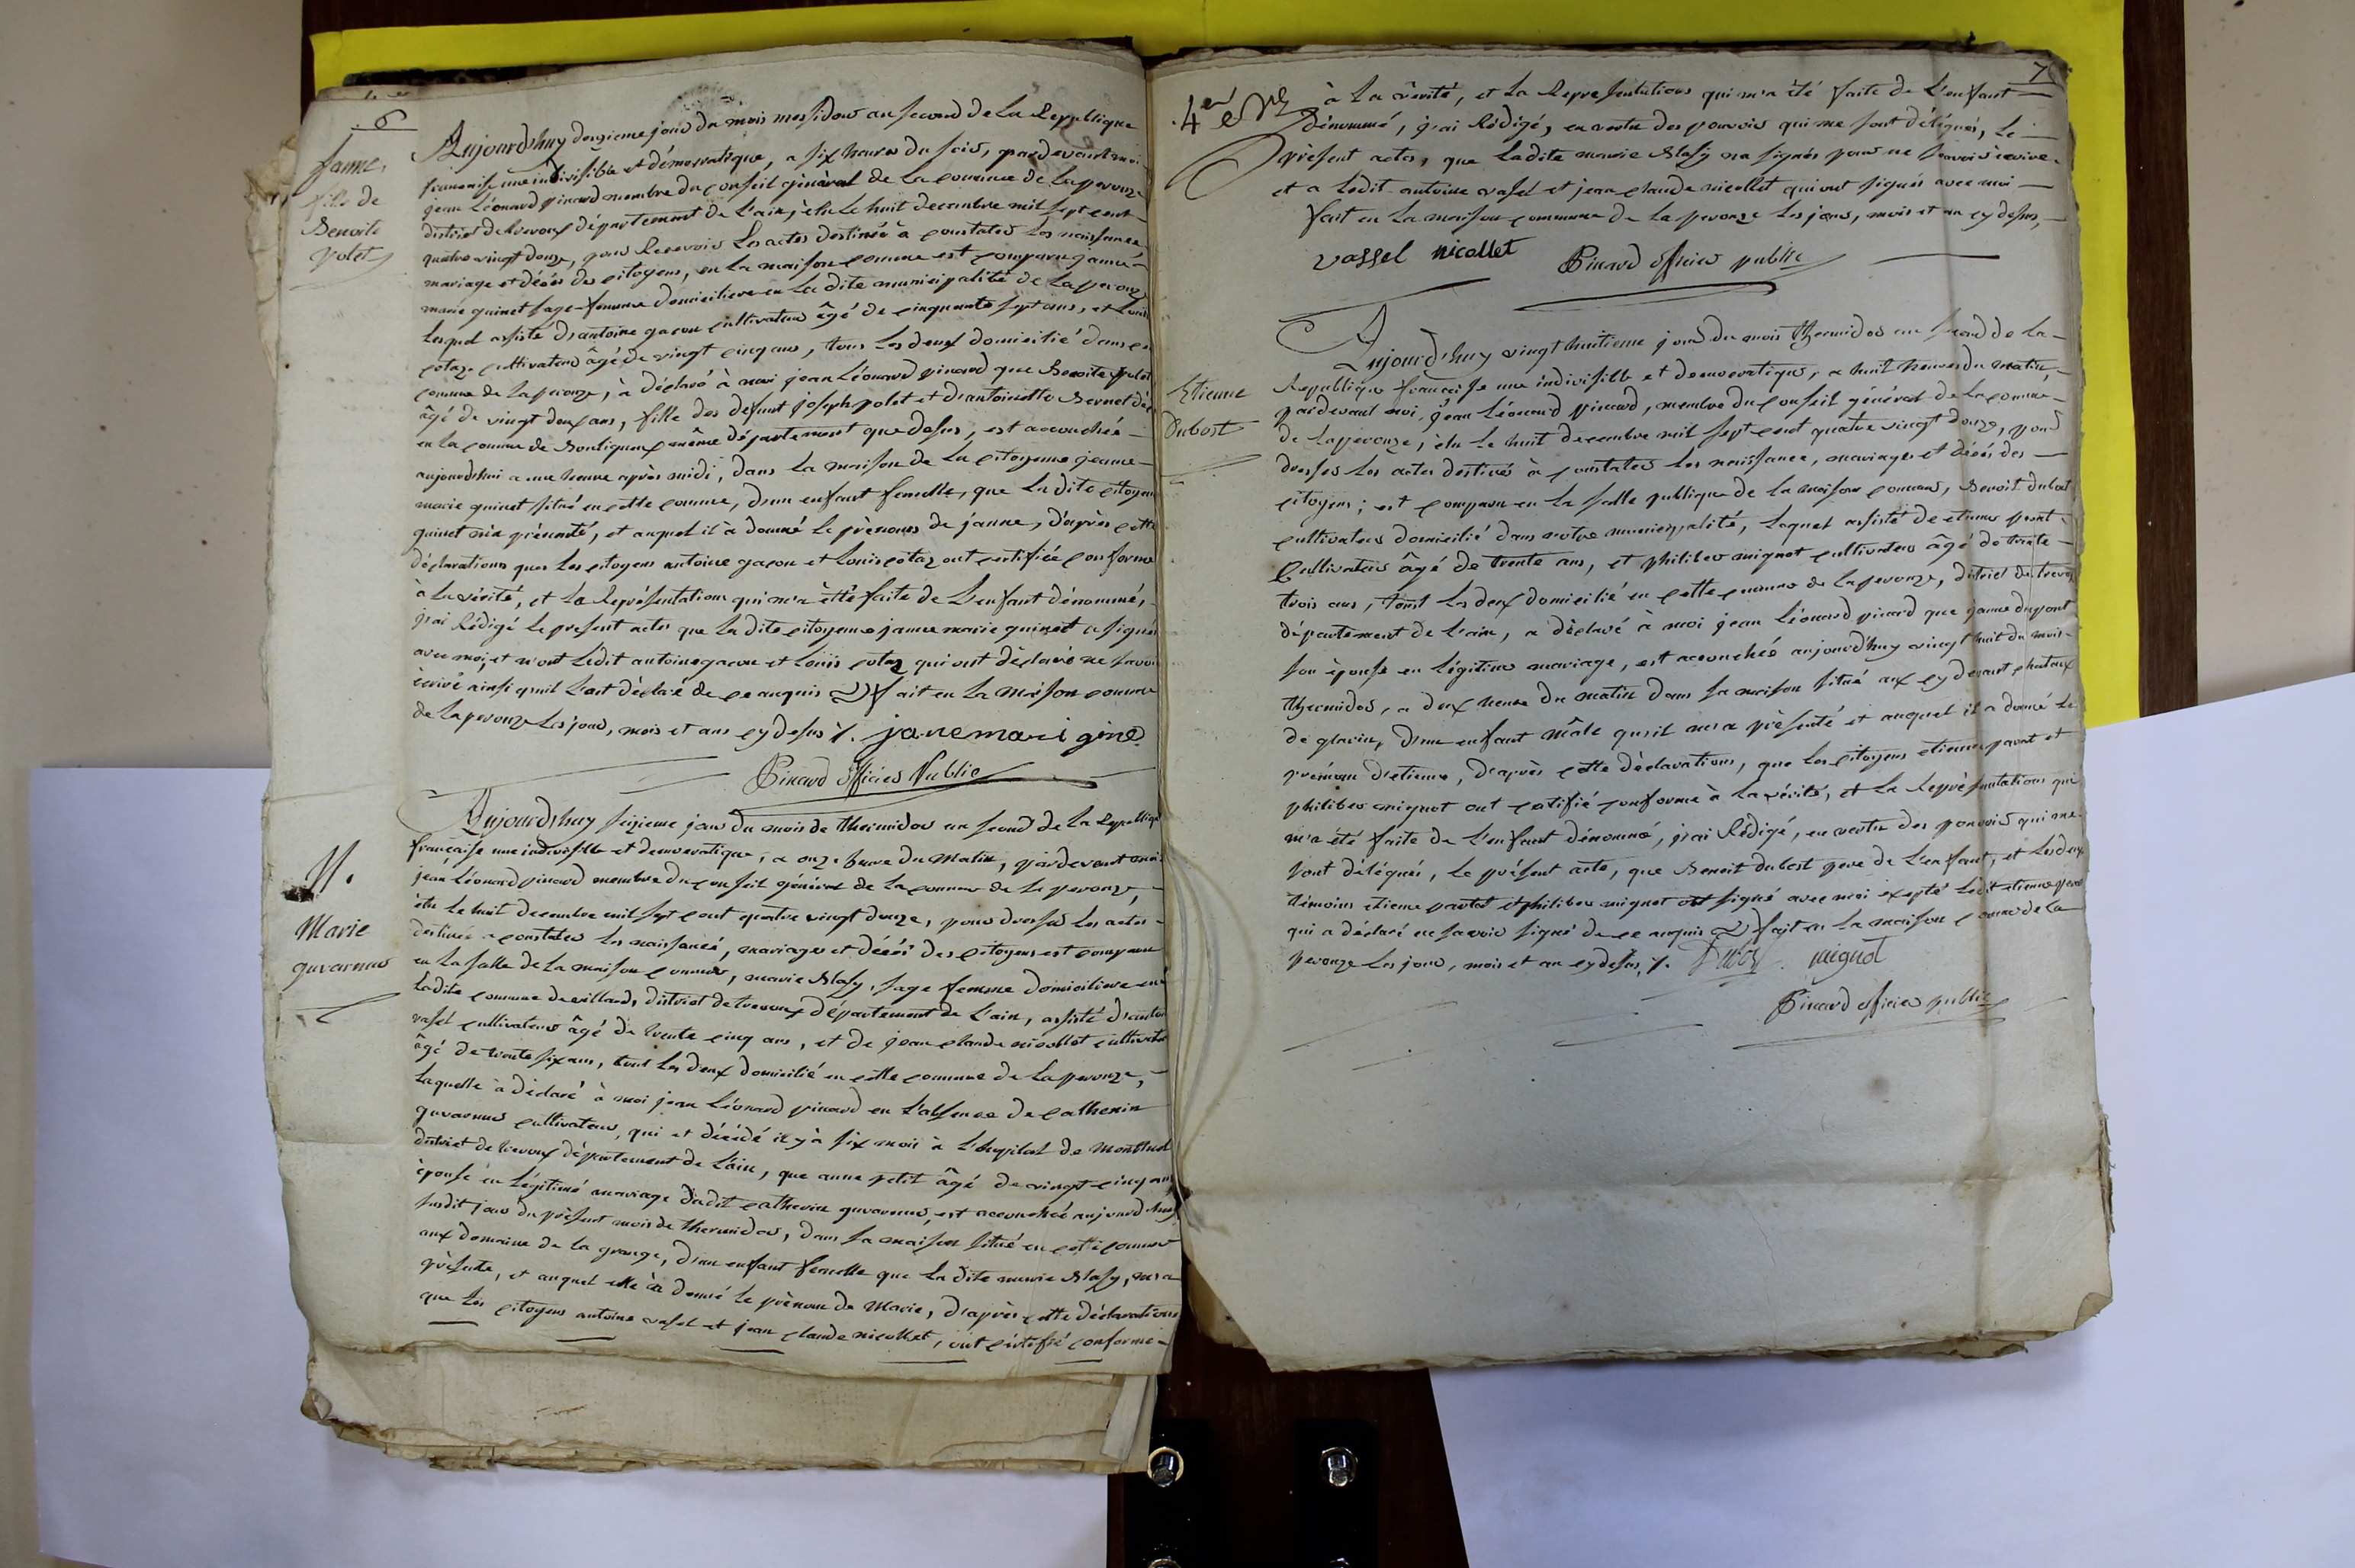 6
Janne,
fille de
Benoite
polet
Aujourd'huy douzieme jour du mois messidor an second de La Republique
francaise une indivisible et démocratique, a six heures du soir, pardevant moi
jean Léonard pinard membre du conseil général de La commune de Laperouze
district de trevoux département de L'ain, élu Le huit decembre mil sept cent
quatre vingt douze, pour Recevoir Les actes destinés à constater Les naissances
mariage et décès des citoyens, en La maison comune est comparu janne
marie guinet sage-femme domiciliere en La dite municipalité de Laperouze
Lesquel assisté d'antoine gacon cultivateur âgé de cinquante sept ans, et Louis
cotaz cultivateur âgé de vingt cinq ans, tous Les deux domicilié dans
comune de Laperouze, à déclaré à moi jean Léonard pinard que Benoite polet
âgé de vingt deux ans, fille des défunt joseph polet et d'antoinette Bernet
en La comune de même département que desus, est accouchée
aujourdhui a une heure après midi, dans La maison de La citoyenne jeanne
marie guinet situé en cette comune, d'un enfant femelle, que La dite citoyenne
guinet m'a présenté, et auquel il à donné Le prénoms de janne, d'après cette
déclarations que Les citoyens antoine gacon et Louis cotaz ont certifiée conforme
à La vérité, et La Représentations qui m'a été faite de L'enfant dénommé,
j'ai Rédigé Le present actes que La dite citoyenne janne marie guinet a signé
avec moi, et n'ont Ledit antoine gacon et Louis cotaz qui ont déclaré ne savoir
écrire ainsi qu'il L'ont déclaré de ce anquis fait en La maison comune
de Laperouze Les jour, mois et ans cy desus ./. jane mari gine
Pinard officier Public
N.
Marie
guvarnes
Aujourd'huy sezieme jour du mois de thermidor an second de La Republique
française une indivisible et democratique, a onze heure du matin, pardevant moi
jean Léonard pinard membre du conseil général de La comune de Laperouze,
élu Le huit decembre mil sept cent quatre vingt douze, pour dresser Les actes
destinés a constater Les naissances, mariages et décès des citoyens est comparue
en La salle de La maison comune, marie Blasy, sage femme domiciliere en
Ladite comune de villards, district de trevoux département de L'ain, assisté d'antoine
vasel cultivateur âgé de trente cinq ans, et de jean claude nicollet cultivateur
âgé de trente six ans, tous Les deux domicilié en cette comune de Laperouze,
Laquelle à déclaré à moi jean Léonard pinard en L'absence de catherin
guvarnes cultivateur, qui et décédé il y à six mois à L'hopital de montluel
district de trevoux département de L'ain, que anne petit âgé de vingt cinq ans
épouse en Légitime mariage dudit catherin guvarnes, est accouchée aujourd'huy
susdit jour du présent mois de thermidor, dans sa maison situé en cette comune
aux domaine de la grange, d'un enfant femelle que La dite marie Blasy, m'a
présenté, et auquel elle à donné Le prénom de Marie, d'après cette déclarations
que Les citoyens antoine vasel et jean claude nicollet, ont certifié conforme
7
4
à La vérité, et La Représentations qui m'a été faite de L'enfant
dénommé, j'ai Rédigé, en vertu des pouvoir qui me sont délégués, Le
présent actes, que Ladite marie Blasy n'a signés pour ne savoir écrire
et a Ledit antoine vasel et jean claude nicollet qui ont signés avec moi
fait en La maison commune de Laperouze Les jour, mois et an cy desus,
vassel nicollet Pinard officier public
Etienne
Dubost
Aujourd'huy vingt huitieme jour du mois thermidor an second de La
Republique française une indivisible et democratique, a huit heures du matin,
pardevant moi, jean Léonard pinard, membre du conseil général de La comune
de Laperouze, élu Le huit decembre mil sept cent quatre vingt douze, pour
dresses Les actes destinés à constater Les naissance, mariages et décès des
citoyens; est comparu en La salle publique de La maison comune, Benoit dubost
cultivateur domicilié dans notre municipalité, Lequel assisté de etienne
cultivateur âgé de trente ans, et philiber mignot cultivateur âgé de trente
trois ans, tous Les deux domicilié en cette comune de Laperouze, district de trevoux
département de L'ain, a déclaré à moi jean Léonard pinard que janne dupont
son épouse en Légitime mariage, est accouchée aujourd'huy vingt huit du mois
thermidor, a deux heure du matin dans sa maison situé aux cy devant chateaux
de glarin, d'un enfant mâle qu'il m'a présenté et auquel il a donné Le
prénom d'etienne, d'après cette déclarations, que Les citoyens etienne et
philiber mignot ont certifié conforme à La vérité, et La Représentations qui
m'a été faite de L'enfant dénommé, j'ai Rédigé, en vertu des pouvoir qui me
sont délégués, Le présent acte, que Benoit dubost pere de L'enfant, et Les deux
témoins etienne et philiber mignot ont signé avec moi exepté Ledit etienne
qui a déclaré ne savoir signé de ce anquis fait en La maison comune de La
perouze Les jour, mois et an cy desus, ./. Dubost mignot
Pinard officier public